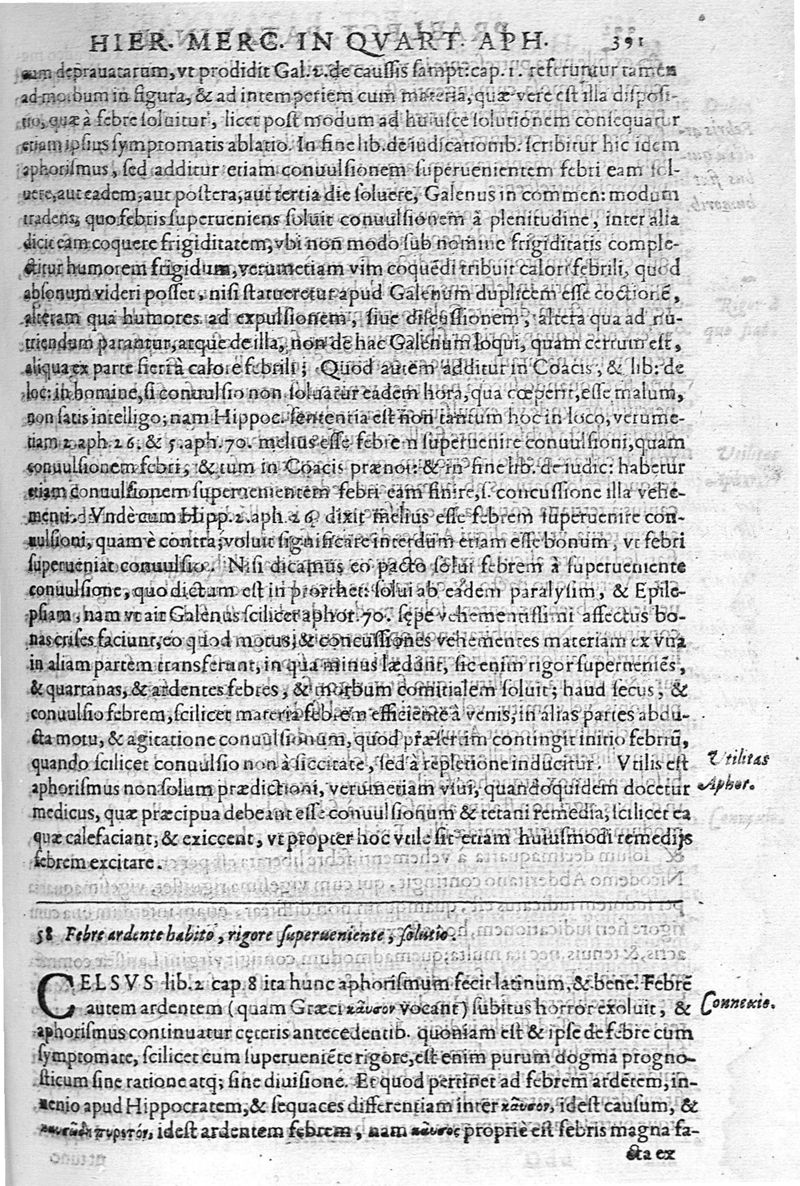 HIER. MERC. IN QVART. APH. 391
eum deprauatarum, vt prodidit Gal. 2. de caussis sampt: cap. 1. referuntur tamen
ad morbum in figura, & ad intemperiem cum materia, quæ vere est illa disposi-
tio, quæ à febre soluitur, licet post modum ad huiusce solutionem consequatur
etiam ipsius symptomatis ablatio. In fine lib. de iudicationib. scribitur hic idem
aphorismus, sed additur etiam conuulsionem superuenientem febri eam sol-
uere, aut eadem, aut postera, aut tertia die soluere, Galenus in commen: modum
tradens, quo febris superueniens soluit conuulsionem à plenitudine, inter alia
dicit eam coquere frigiditatem, vbi non modo sub nomine frigiditatis comple-
ctitur humorem frigidum, verumetiam vim coquēdi tribuit calori febrili, quod
absonum videri posset, nisi statueretur apud Galenum duplicem esse coctionē,
alteram qua humores ad expulsionem, siue discussionem, altera qua ad nu-
triendum parantur, atque de illa, non de hac Galenum loqui, quam certum est,
aliqua ex parte fieri à calore febrili; Quod autem additur in Coacis, & lib: de
loc: in homine, si conuulsio non soluatur eadem hora, qua cœperit, esse malum,
non satis intelligo; nam Hippoc. sententia est non tantum hoc in loco, verume-
tiam 2. aph. 26. & 5. aph. 70. melius esse febrem superuenire conuulsioni, quam
conuulsionem febri, & tum in Coacis prænot: & in fine lib. de iudic: habetur
etiam conuulsionem superuenientem febri eam finire, s. concussione illa vehe-
menti. Vndè cum Hipp. 2. aph. 26 dixit melius esse febrem superuenire con-
uulsioni, quam è contra; voluit significare interdum etiam esse bonum, vt febri
superueniat conuulsio. Nisi dicamus eo pacto solui febrem à superueniente
conuulsione, quo dictum est in prorrhet: solui ab eadem paralysim, & Epile-
psiam, nam vt ait Galenus scilicet aphor. 70. sepe vehementissimi affectus bo-
nas crises faciunt, eo quod motus, & concussiones vehementes materiam ex vna
in aliam partem transferunt, in qua minus lædāt, sic enim rigor superueniēs,
& quartanas, & ardentes febres, & morbum comitialem soluit; haud secus, &
conuulsio febrem, scilicet materia febrem efficiente à venis, in alias partes abdu-
cta motu, & agitatione conuulsionum, quod præsertim contingit initio febriū,
quando scilicet conuulsio non à siccitate, sed à repletione inducitur. Vtilis est
aphorismus non solum prædictioni, verumetiam viui, quandoquidem docetur
medicus, quæ præcipua debeant esse conuulsionum & tetani remedia, scilicet ea
quæ calefaciant, & exiccent, vt propter hoc vtile sit etiam huiusmodi remedijs
febrem excitare.
Vtilitas
Aphor.
58 Febre ardente habito, rigore superueniente, solutio.
CELSVS lib. 2 cap. 8 ita hunc aphorismum fecit latinum, & bene. Febrē
autem ardentem (quam Græci καῦσον vocant) subitus horror exoluit, &
aphorismus continuatur cęteris antecedentib. quoniam est & ipse de febre cum
symptomate, scilicet cum superueniēte rigore, est enim purum dogma progno-
sticum sine ratione atq; sine diuisione. Et quod pertinet ad febrem ardētem, in-
uenio apud Hippocratem, & sequaces differentiam inter καῦσον, idest causum, &
πυρετὸν, idest ardentem febrem, nam καῦσος proprie est febris magna fa-
cta ex
Connexio.